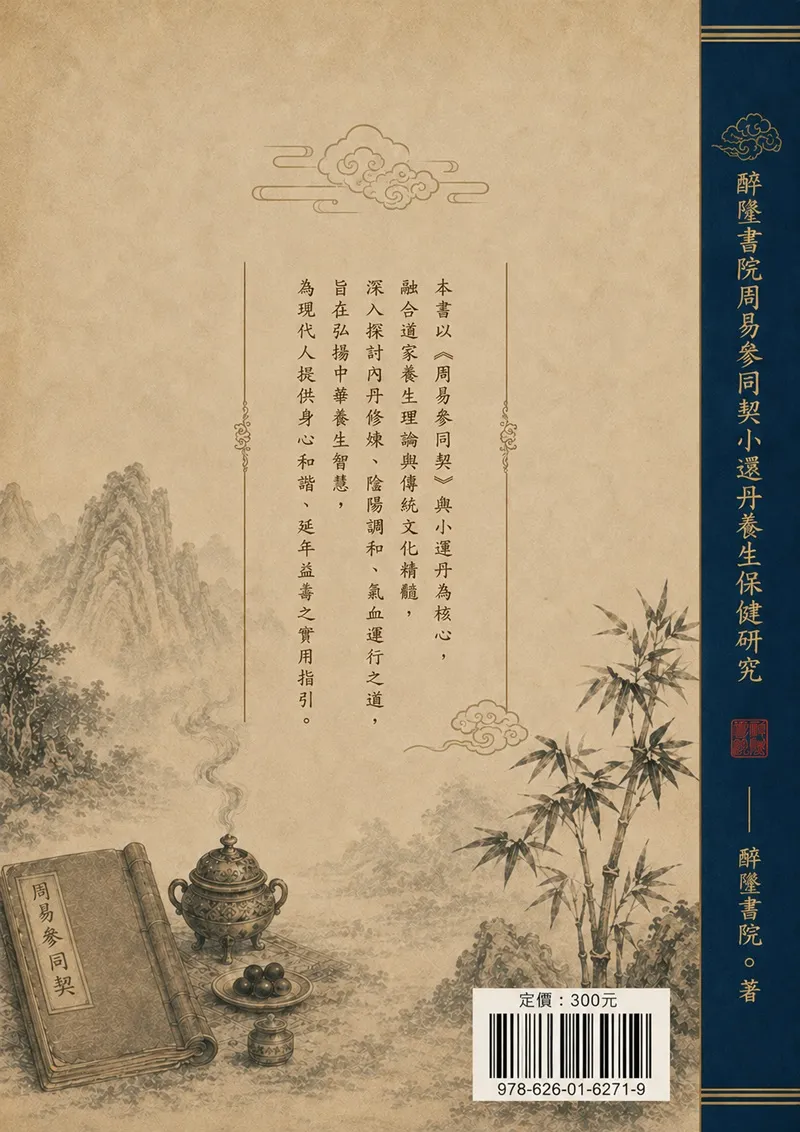 醉隆書院周易參同契小還丹養生保健研究
醉隆書院。著
本書以《周易參同契》與小運丹為核心，
融合道家養生理論與傳統文化精髓，
深入探討內丹修煉、陰陽調和、氣血運行之道，
旨在弘揚中華養生智慧，
為現代人提供身心和諧、延年益善之實用指引。
周易參同契
定價：300元
978-626-01-6271-9